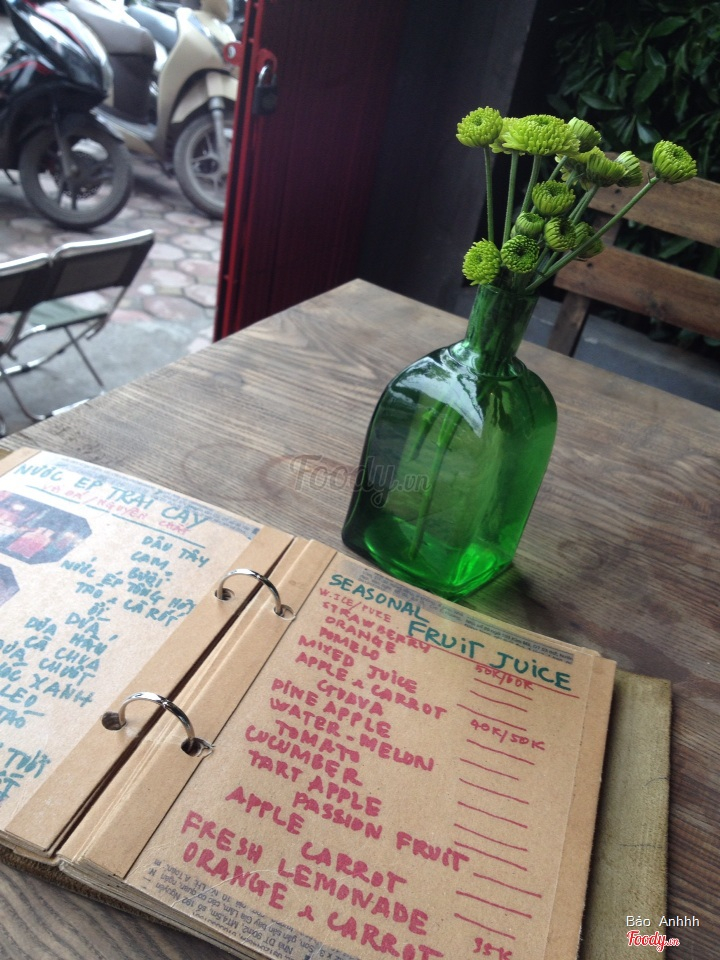 NƯỚC ÉP TRÁI CÂY
CÓ ĐÁ / NGUYÊN CHẤT
DÂU TÂY
CAM
BƯỞI
NƯỚC ÉP TỔNG HỢP
TÁO & CÀ RỐT
ỔI
DỨA
DƯA HẤU
CÀ CHUA
DƯA CHUỘT
TÁO
SEASONAL
FRUIT JUICE
W.ICE/PURE
STRAWBERRY 50K/60K
ORANGE
POMELO
MIXED JUICE
APPLE & CARROT 40K/50K
GUAVA
PINE APPLE
WATER-MELON
TOMATO
CUCUMBER
TART APPLE
PASSION FRUIT
APPLE
CARROT
FRESH LEMONADE
ORANGE & CARROT 35K
Foody.vn
Bảo Anhhh
Foody.vn